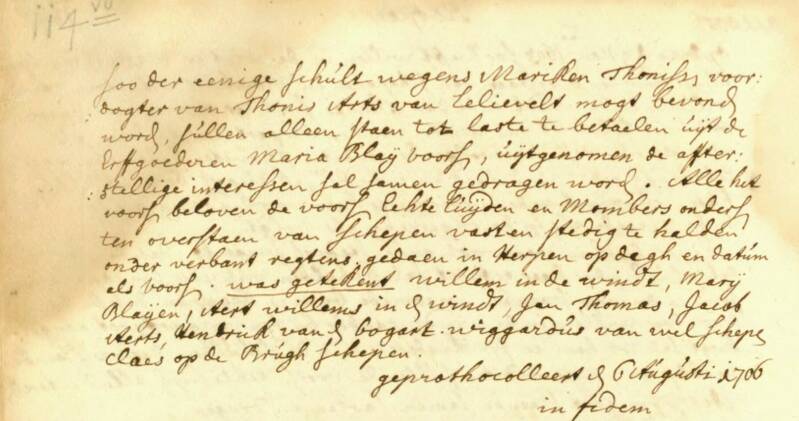 114 vo
soo der eenige schult wegens Mariken Thoniss, voor:
dogter van Thonis Arts van Lelievelt mogt bevond
word, sullen alleen staen tot laste te betaelen uijt de
Erfgoederen Maria Blaij voors, uijtgenomen de after:
stellige interessen sal samen gedragen word. Alle het
voors beloven de voors Echte luijden en Mombers onders
ten overstaen van schepen vast en stedig te halden
onder verbant regtens, gedaen in Herpen op dagh en datum
als voors. was getekent willem in de windt, Marij
Blaijen, Aert willems in d windt, Jan Thomas, Jacob
Aerts, Hendrick van d bogart. wiggardus van wel schepe
Claes op de Brugh schepen.
geprothocolleert d 6 Augusti 1706
in fidem